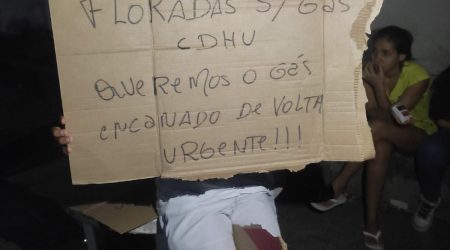 FLORADAS S/ GáS
CDHU
QUEREMOS O GáS
ENCANADO DE VOLTA
URGENTE!!!